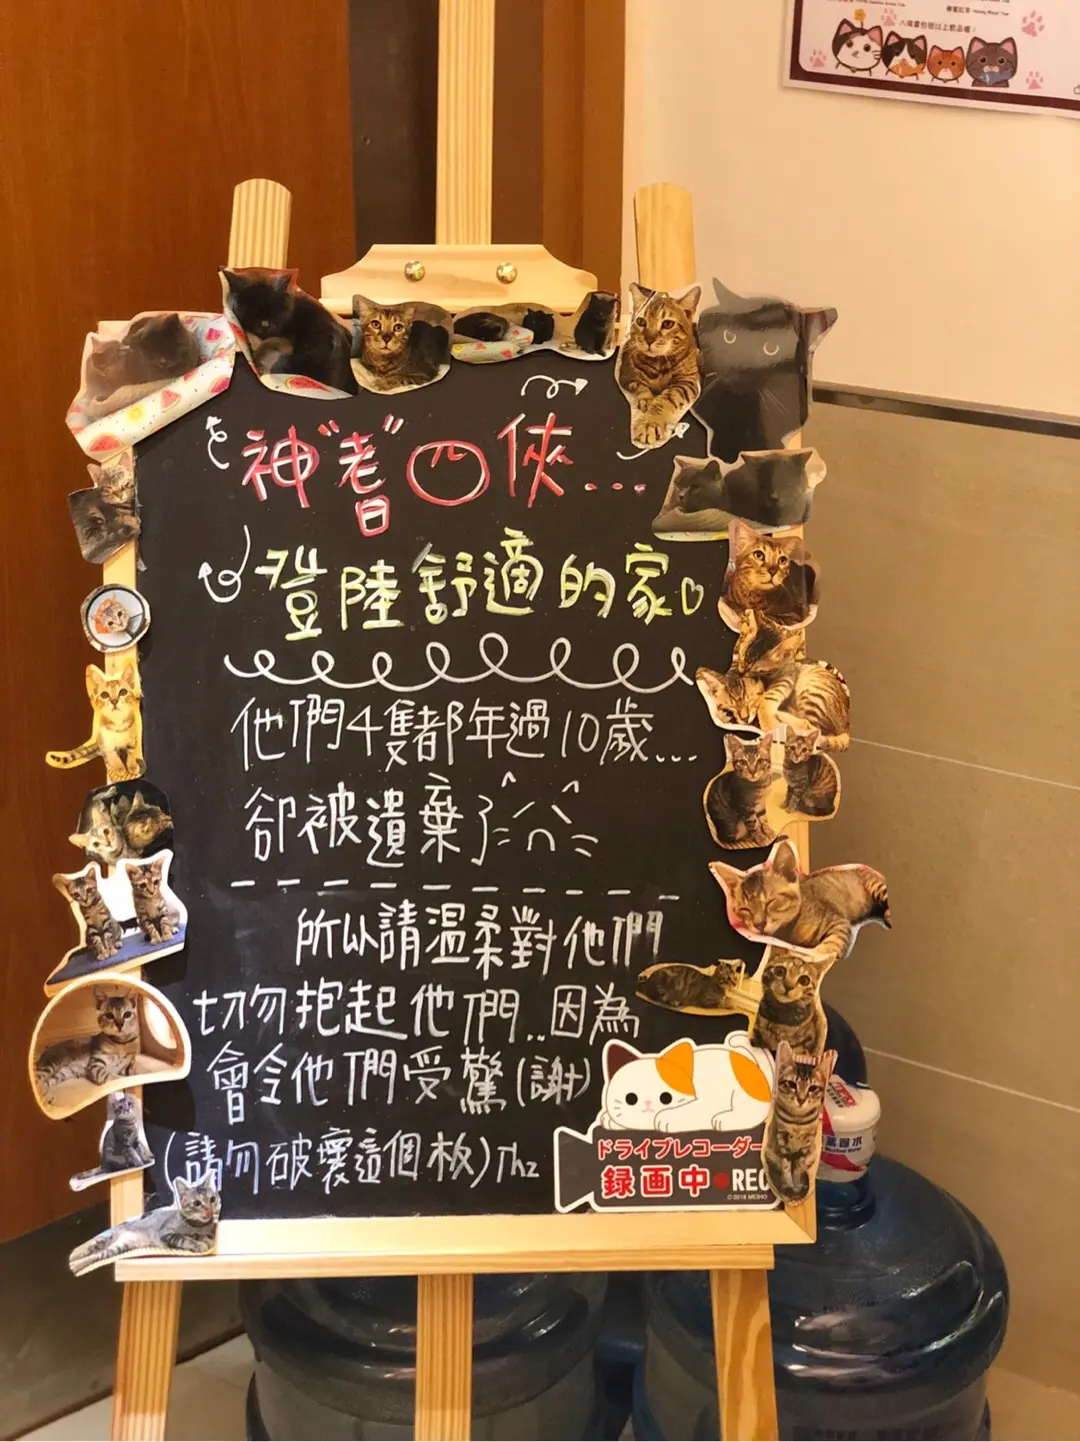 八塊畫包括以上飲品喔！
神"耆"四俠...
登陸舒適的家
他們4隻都年過10歲...
卻被遺棄了
所以請溫柔對他們
切勿抱起他們..因為
會令他們受驚(謝)
(請勿破壞這個板)Thz
ドライブレコーダー
録画中 REC
©2018 MEIHO
蒸餾水